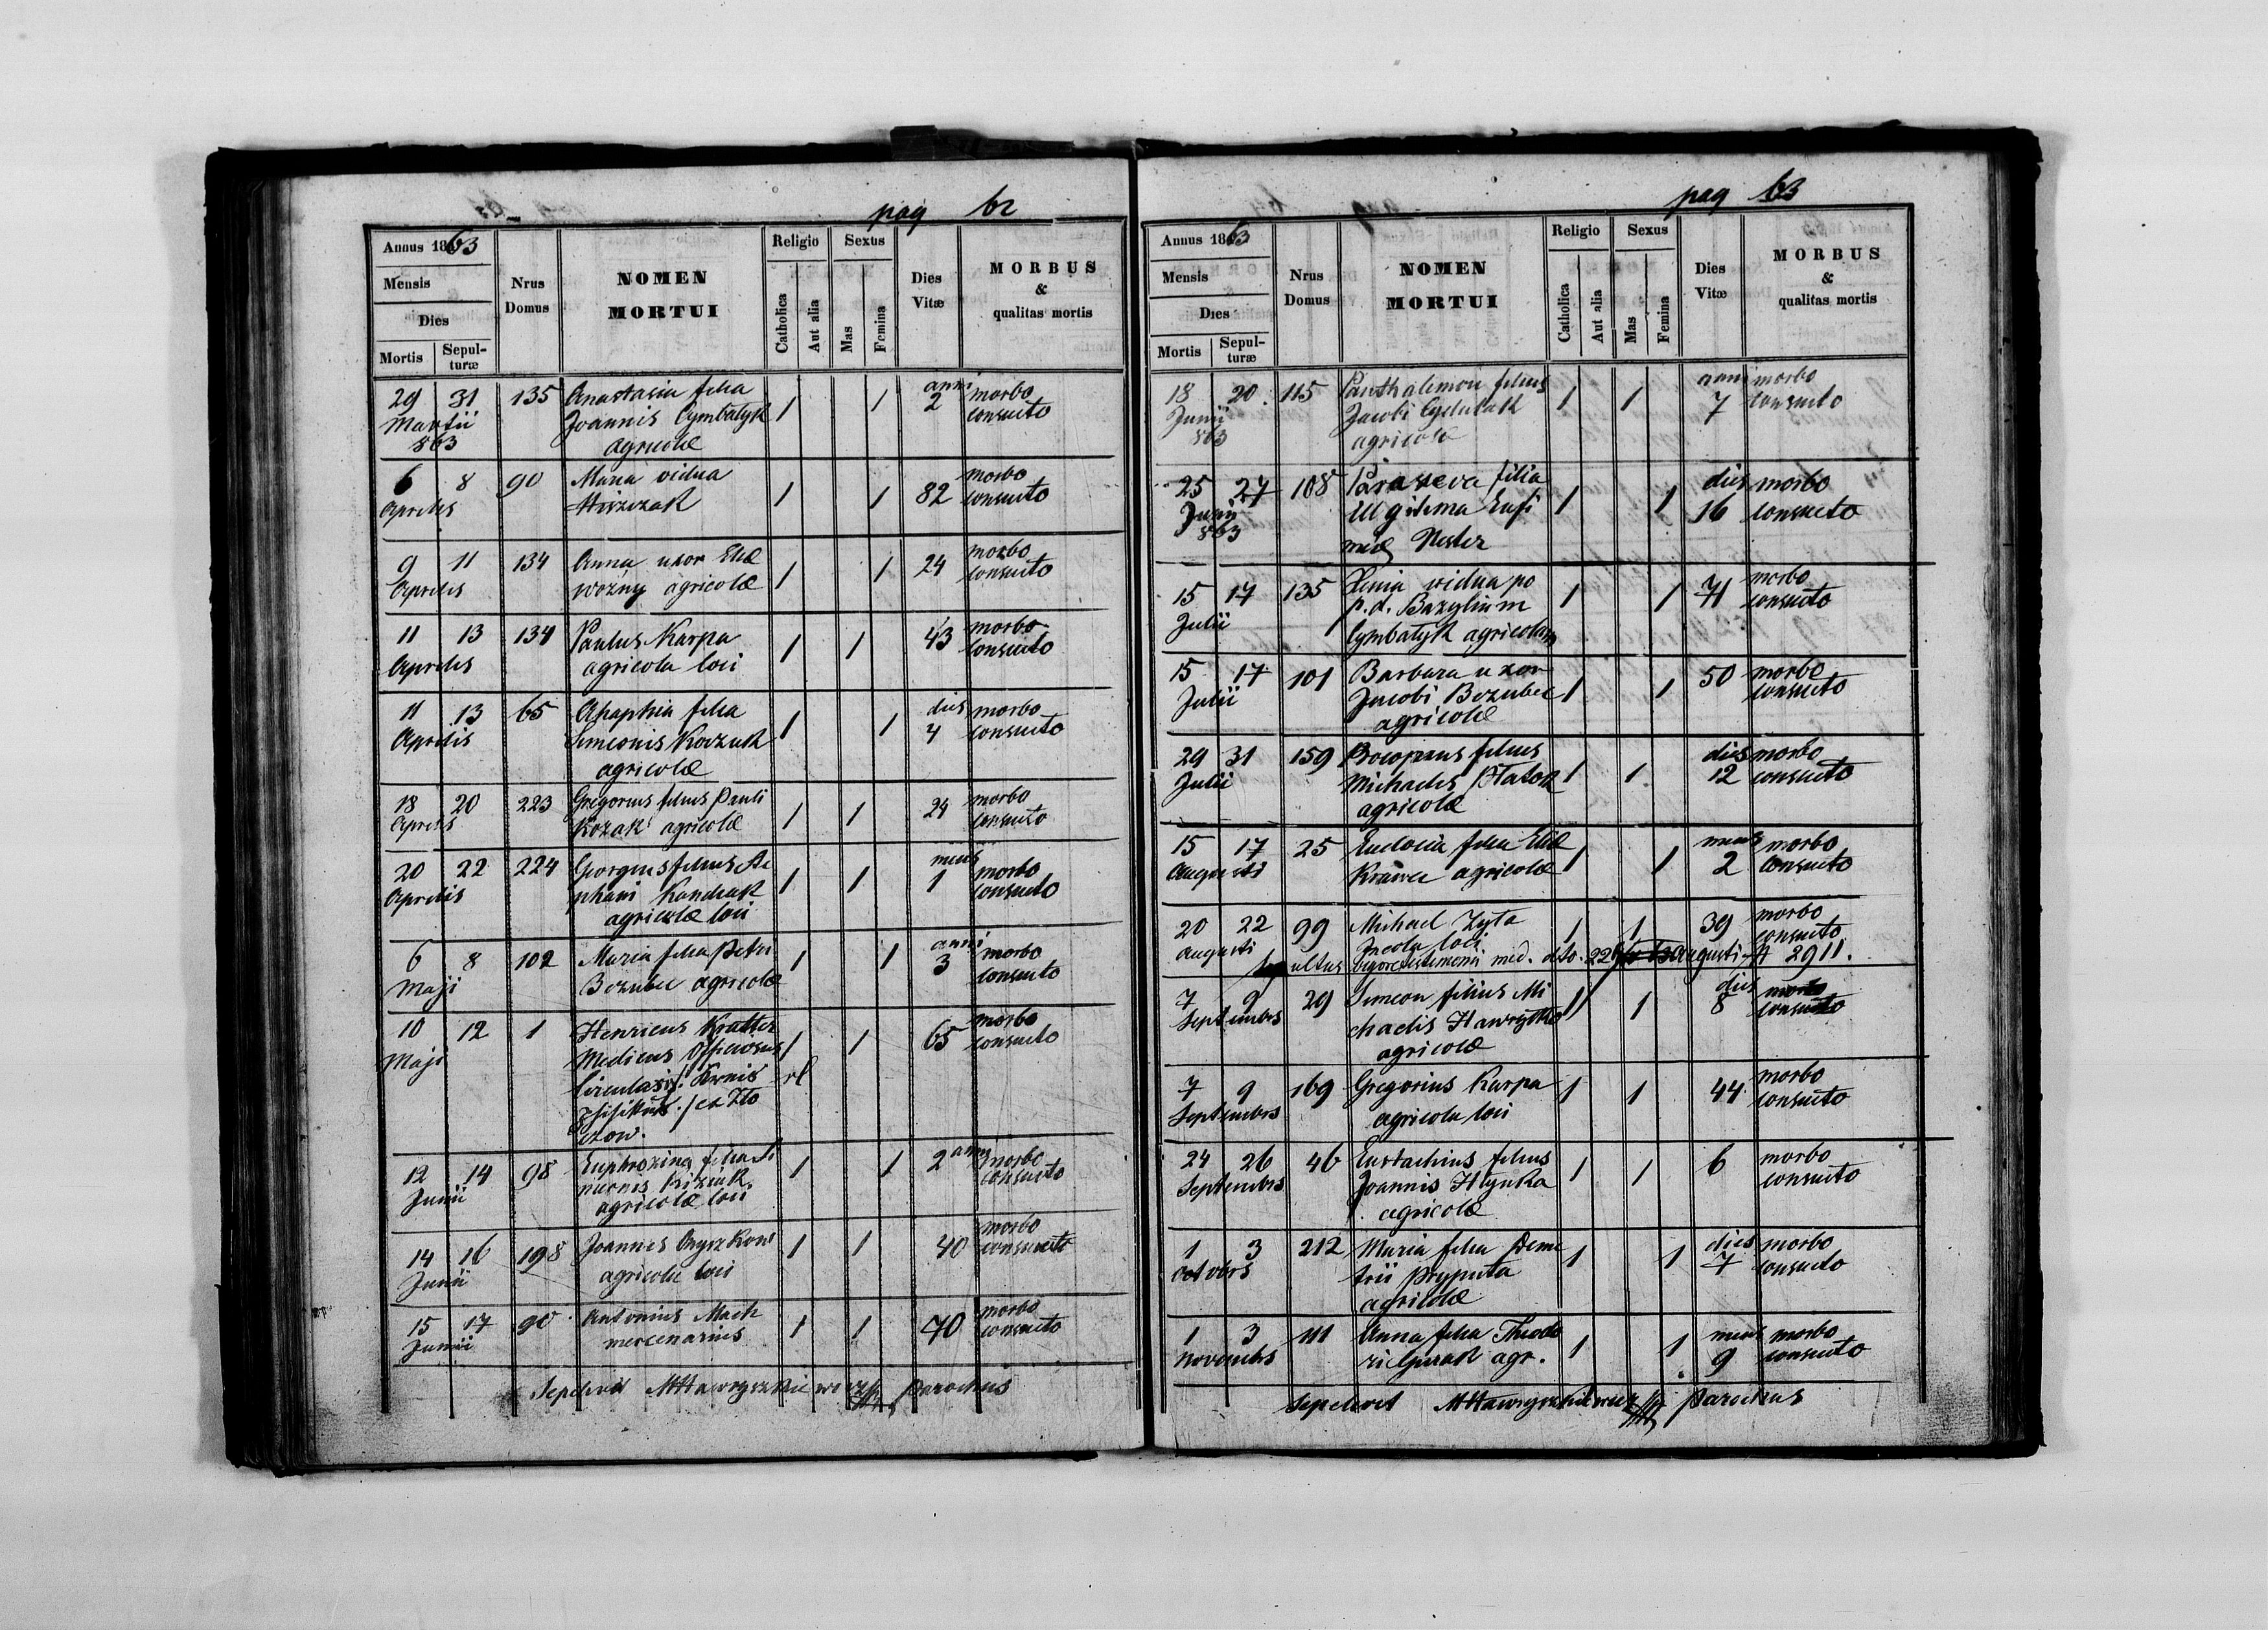 pag 62
Annus 1863
Mensis
Dies
Mortis Sepul-turæ
Nrus Domus
NOMEN MORTUI
Religio
Catholica Aut alia
Sexus
Mas Femina
Dies Vitæ
MORBUS & qualitas mortis
29 31 135 Anastasia filia 1 1 anni 2 morbo
Martii Joannis Cymbalyk consueto
863 agricolæ
6 8 90 Maria vidua 1 1 82 morbo
Aprilis consueto
9 11 134 Anna uxor Eliæ 1 1 24 morbo
Aprilis Woźny agricolæ consueto
11 13 134 Paulus Karpa 1 1 43 morbo
Aprilis agricola loci consueto
11 13 65 Ahaphia filia 1 1 dies 4 morbo
Aprilis Simeonis Korzuk consueto
agricolæ
18 20 223 Gregorius filius Pauli 1 1 24 morbo
Aprilis Kozak agricolæ consueto
20 22 224 Georgius filius Ste 1 1 mens 1 morbo
Aprilis phani Kondrak consueto
agricolæ loci
6 8 102 Maria filia Petri 1 1 anni 3 morbo
Maji Bezubec agricolæ consueto
10 12 1 Henricus Kratter 1 1 65 morbo
Maji Medicus Officiosus consueto
Circularis
ex Zło
czow.
12 14 98 Euphrozina filia Si 1 1 2 anni morbo
Junii agricolæ loci consueto
14 16 198 Joannes Onyszkow 1 1 40 morbo
Junii agricola loci consueto
15 17 90 Antonius Mach 1 1 70 morbo
Junii mercenarius consueto
Sepelivit MHawryszkiewicz Parochus
pag 63
Annus 1863
Mensis
Dies
Mortis Sepul-turæ
Nrus Domus
NOMEN MORTUI
Religio
Catholica Aut alia
Sexus
Mas Femina
Dies Vitæ
MORBUS & qualitas mortis
18 20 115 Panthalemon filius 1 1 anni 7 morbo
Junii Jacobi consueto
863 agricolæ
25 27 108 Paraskeva filia 1 1 dies 16 morbo
Junii illegitima Eufi consueto
863 miæ Nester
15 17 135 Xenia vidua po 1 1 71 morbo
Julii p.d. Bazylium consueto
Cymbalyk agricolam
15 17 101 Barbara uxor 1 1 50 morbo
Julii Jacobi Bezubec consueto
agricolæ
29 31 159 Procopius filius 1 1 dies 12 morbo
Julii Michaelis Płatok consueto
agricolæ
15 17 25 Eudocia filia Eliæ 1 1 mens 2 morbo
Augusti Krawec agricolæ consueto
20 22 99 Michael Zyta 1 1 39 morbo
Augusti Incola loci consueto
Sepultus vigore testimonii med. dto. 22 Augusti N 2911.
7 9 29 Simeon filius Mi 1 1 dies 8 morbo
Septembris chaelis Hawryłko consueto
agricolæ
7 9 169 Gregorius Karpa 1 1 44 morbo
Septembris agricola loci consueto
24 26 46 Eustachius filius 1 1 6 morbo
Septembris Joannis Hlynka consueto
agricolæ
1 3 212 Maria filia Deme 1 1 dies 7 morbo
Octobris trii Pryputa consueto
agricolæ
1 3 111 Anna filia Theodo 1 1 mens 9 morbo
Novembris ri agr. consueto
Sepelivit MHawryszkiewicz Parochus